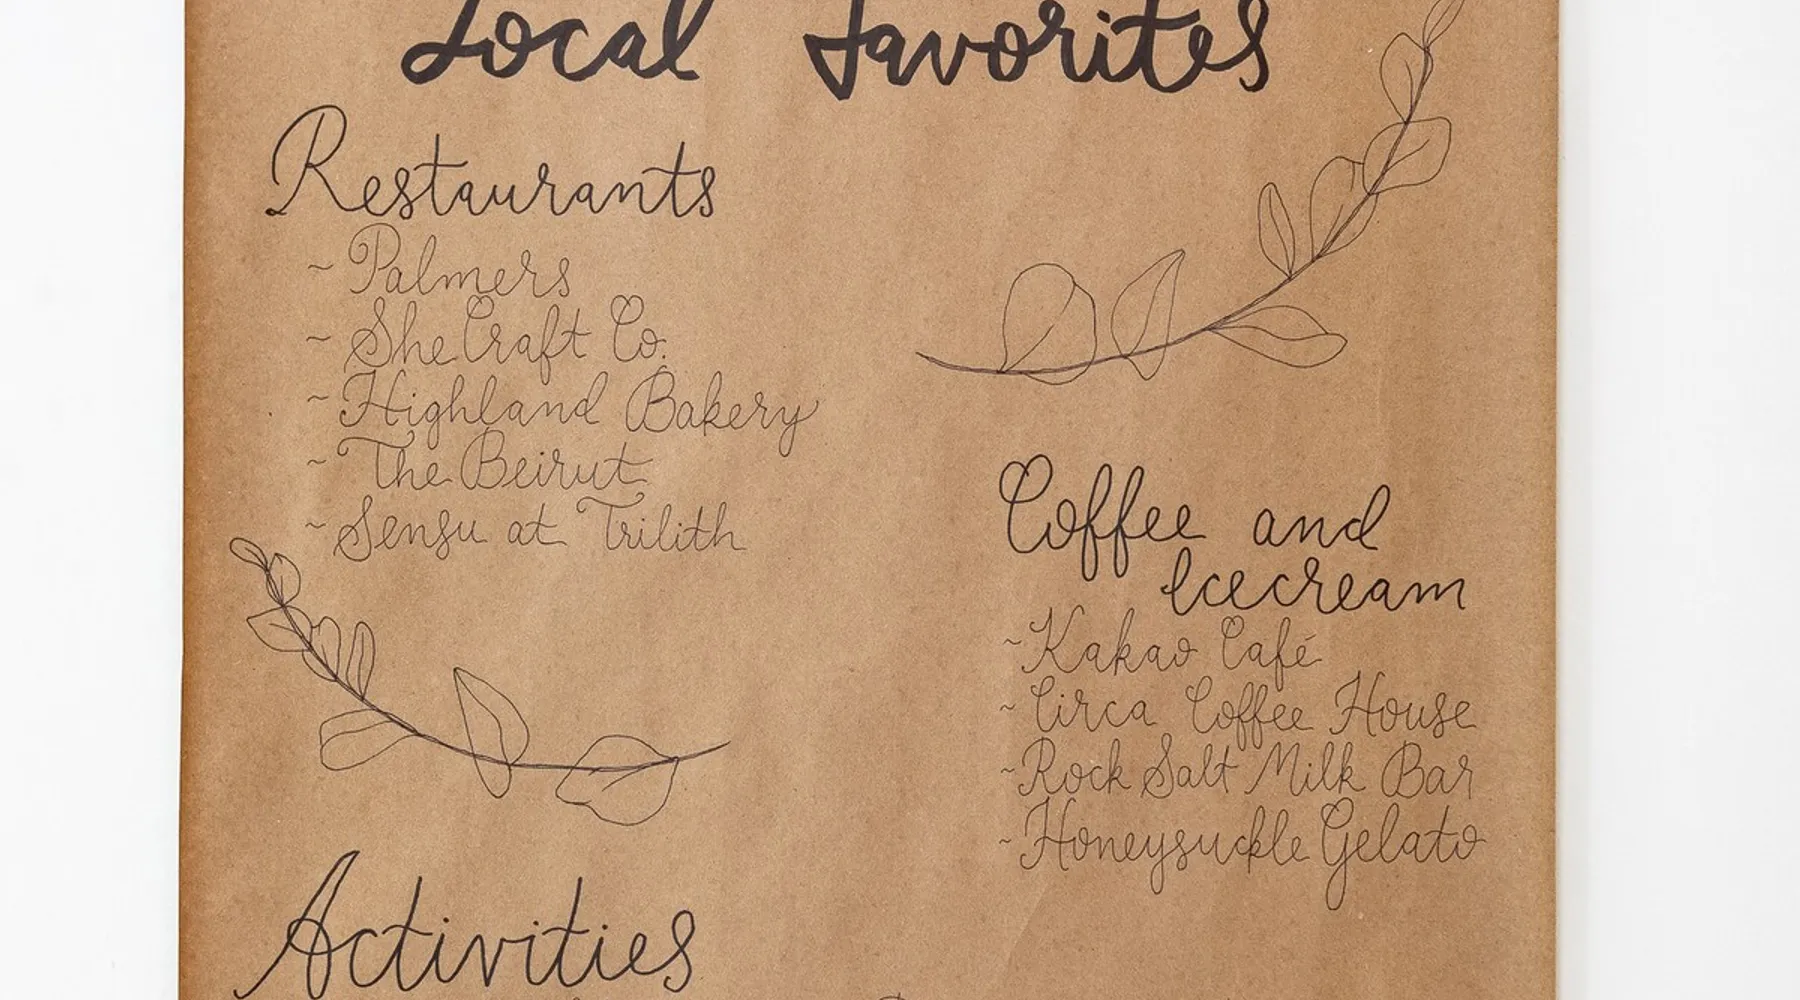 Local Favorites
Restaurants
~ Palmers
~ SheCraft Co.
~ Highland Bakery
~ The Beirut
~ Sensu at Trilith
Coffee and
Icecream
~ Kakao Café
~ Circa Coffee House
~ Rock Salt Milk Bar
~ Honeysuckle Gelato
Activities